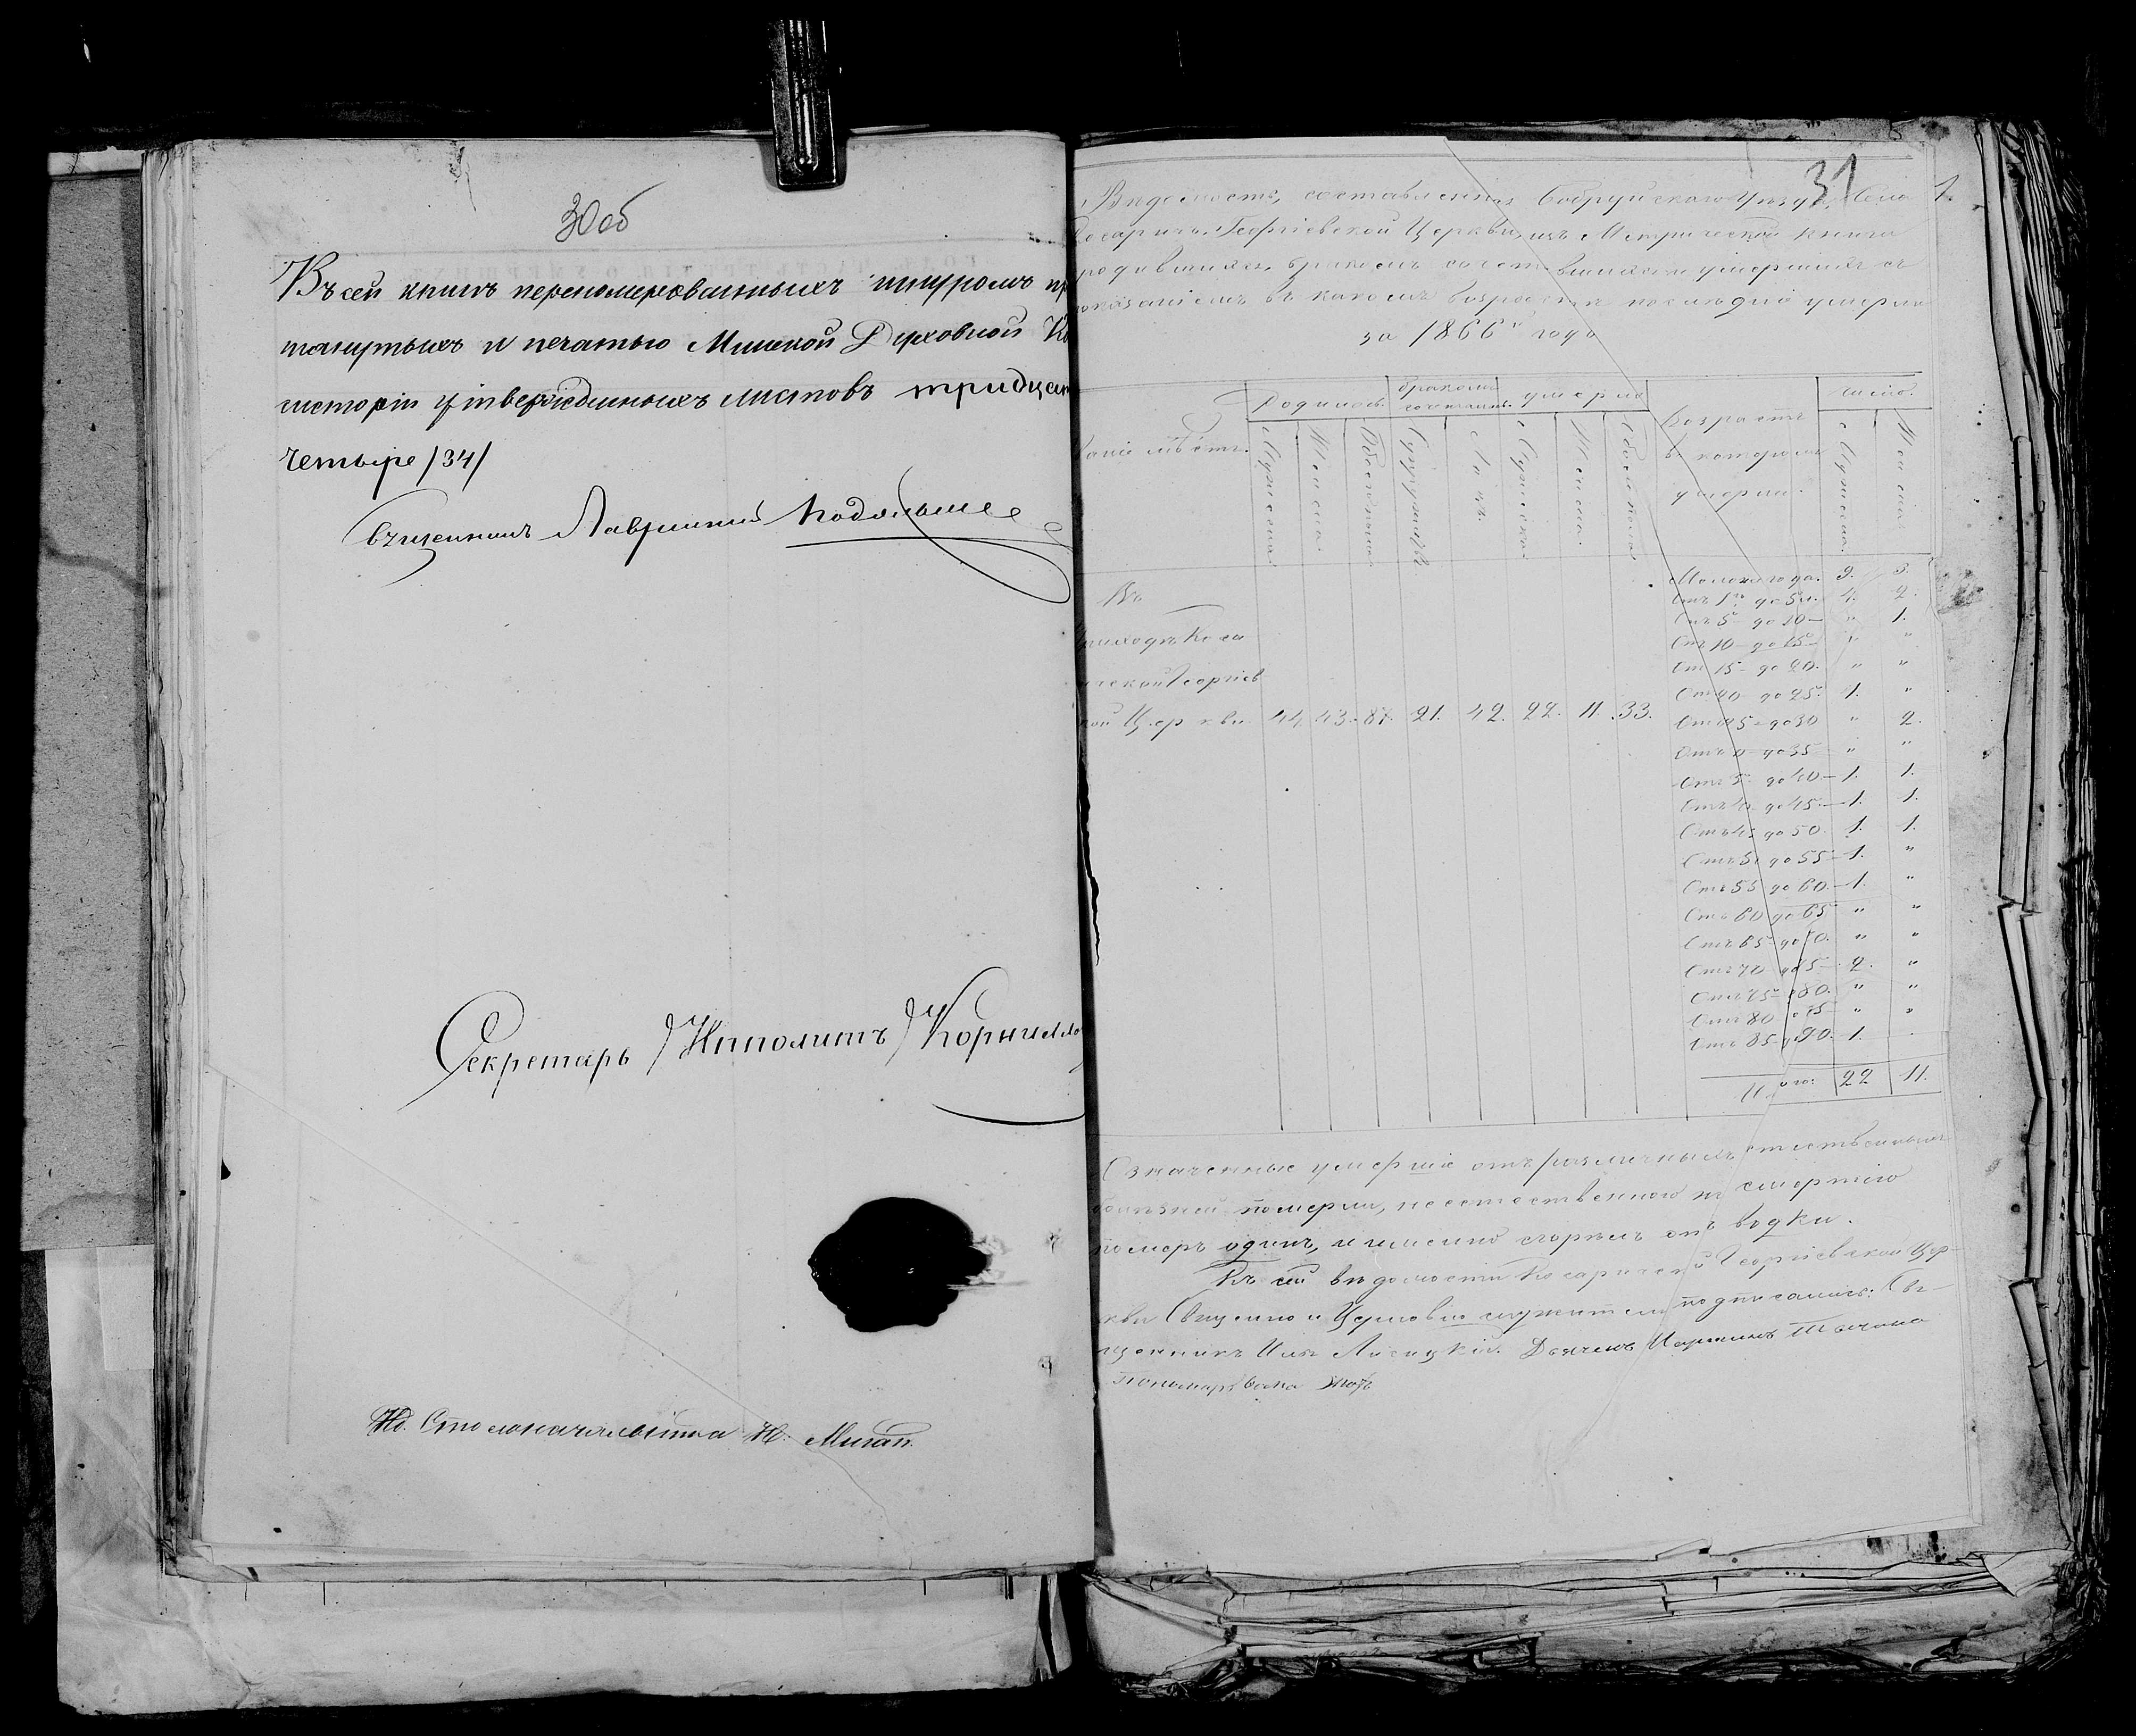 30 об
Въ сей книгѣ перенумерованныхъ шнуромъ пр
тянутыхъ и печатью Минской Духовной Ко
систоріи утвержденныхъ листовъ тридцат
четыре /34/
Священникъ Лавринтій
Секретарь Ипполитъ Корнилло
И. Столоначальника И.
31
1.
Вѣдомость, составленная Бобруйскаго Уѣзда, Села
Косаричъ Георгіевской Церкви, изъ Метрической книги
родившихся, бракомъ сочетавшихся и умершихъ съ
показаніемъ въ какомъ возрастѣ послѣдніе умерли
за 1866й годъ
Родилось. бракомъ сочетались. умерло Возрастъ въ которомъ умерли. Число.
ваніе мѣстъ. Мужеска. Женска. Обоего пола. Супружествъ. Лицъ. Мужеска. Женска. Обоего пола. Мужеска. Женска.
Въ
приходѣ Коса
ической Георгіев
кой Церкви 44. 43. 87. 21. 42. 22. 11. 33.
Моложе года. 9. 3.
Отъ 1го до 5и. 4. 2.
Отъ 5 до 10 – " 1.
От 10 – до 15 – " "
От 15 – до 20. " "
От 20 – до 25. 1. "
От 25 – до 30 " 2.
Отъ 30 – до 35 " "
Отъ 35 до 40 – 1. 1.
Отъ 40 до 45. – 1. 1.
Отъ 45 до 50. 1. 1.
Отъ 50 до 55 – 1. "
Отъ 55 до 60. – 1. "
Отъ 60 до 65 " "
Отъ 65 до 70. " "
Отъ 70 до 75 – 2. "
Отъ 75 – 80. " "
Отъ 80 до 85 – " "
Отъ 85 до 90. – 1. "
Итого: 22 11.
Означенные умершіе отъ различныхъ естественныхъ
болѣзней померли, неестественною же смертію
померъ одинъ, и именно сгорѣлъ отъ водки.
Къ сей вѣдомости Косаричской Георгіевской Цер-
кви Священно и Церковно служители подписались: Свя-
щенникъ Илья Лисицкій. Дьячекъ